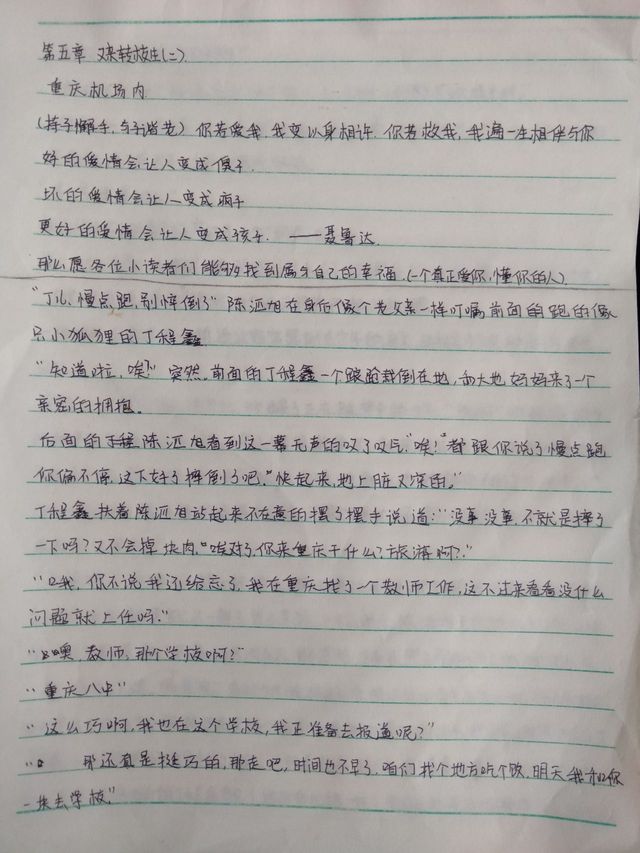 第五章 又来转校生(二)
重庆机场内
(持子懈手,与子谐老) 你若爱我,我变以身相许.你若救我,我遍一生相伴与你
好的爱情会让人变成傻子.
坏的爱情会让人变成疯子
更好的爱情会让人变成孩子. ——聂鲁达.
那么愿各位小读者们能够找到属于自己的幸福.(一个真正爱你,懂你的人).
"丁儿、慢点跑,别摔倒了" 陈泗旭在身后像个老父亲一样叮嘱前面的跑的像
只小狐狸的丁程鑫
"知道啦,唉!" 突然,前面的丁程鑫一个踉跄栽倒在地,和大地妈妈来了一个
亲密的拥抱。
后面的陈泗旭看到这一幕无声的叹了叹气"唉!都跟你说了慢点跑
你偏不停.这下好了摔倒了吧.""快起来,地上脏又凉的。"
丁程鑫扶着陈泗旭站起来不在意的摆了摆手说道:"没事没事,不就是摔了
一下吗?又不会掉块肉.""唉对了,你来重庆干什么?旅游啊?."
"我,你不说我还给忘了,我在重庆找了一个教师工作,这不过来看看没什么
问题就上任吗."
"噢,教师,那个学校啊?"
"重庆八中"
"这么巧啊,我也在这个学校,我正准备去报道呢?"
" 那还真是挺巧的,那走吧,时间也不早了,咱们找个地方吃个饭,明天我和你
一块去学校."